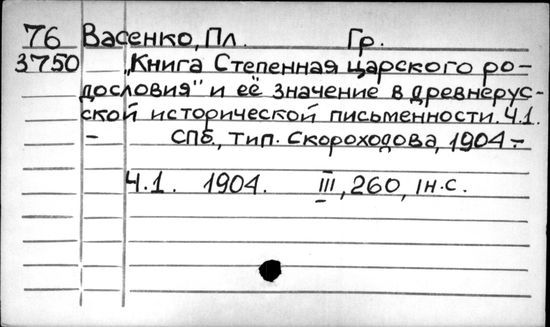 76 Васенко, Пл. Гр.
3750 „Книга Степенная царского ро-
дословия" и её значение в древнерус-
ской исторической письменности. Ч.1.
- СПб., тип. Скороходова, 1904 -
Ч.1. 1904. III, 260, 1н.с.